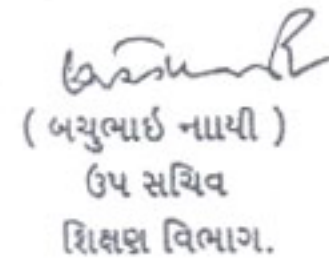 ( બચુભાઇ નાાયી )
ઉપ સચિવ
શિક્ષણ વિભાગ.